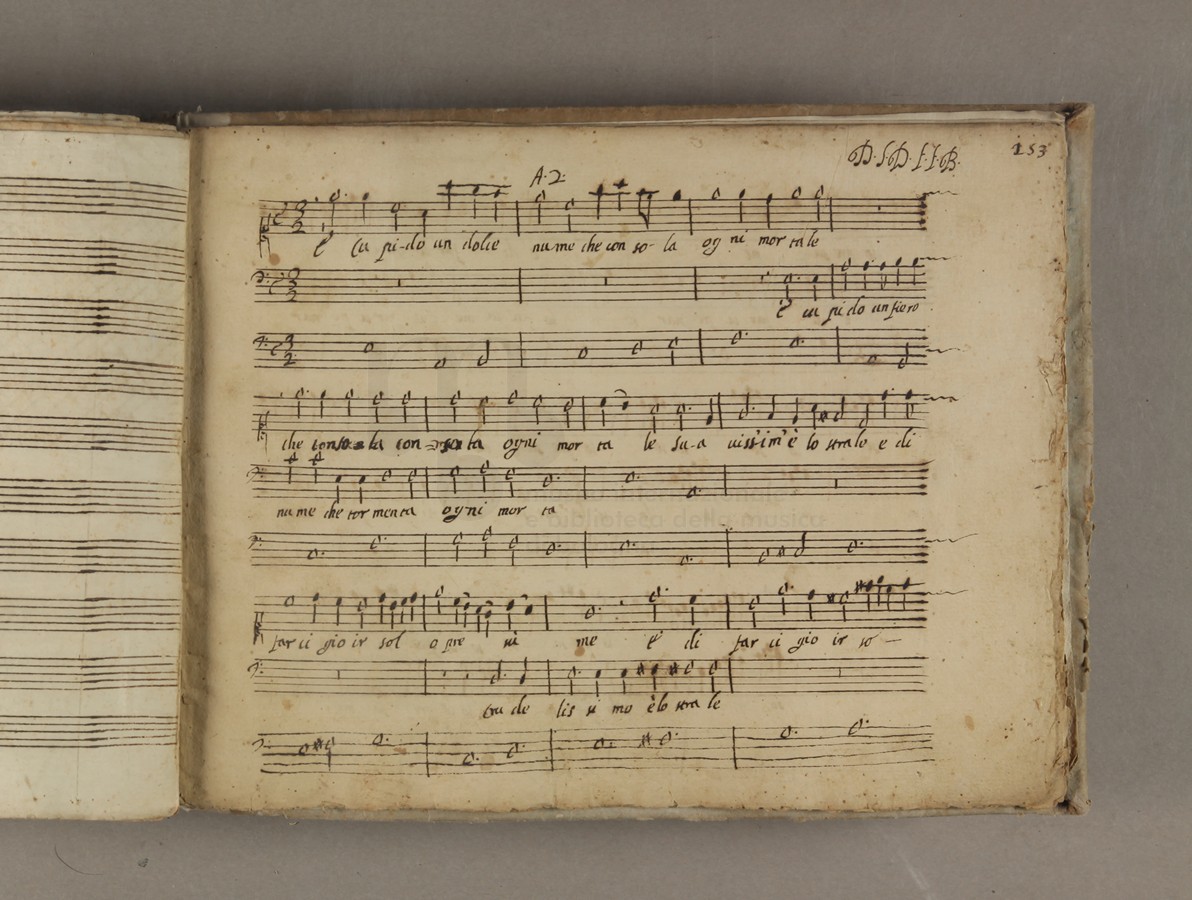 153
A. 2.
È Cu pi-do un dolce nu-me che con so-la og ni mor tale
È cu pi do un fiero
che con-so-la ogni mor ta le su-a vissim'è lo strale e di
nu me che tor menta ogni mor ta
far ci gio ir sol o pre su me è di far ci gio ir so
cru de lis si mo è lo stra le